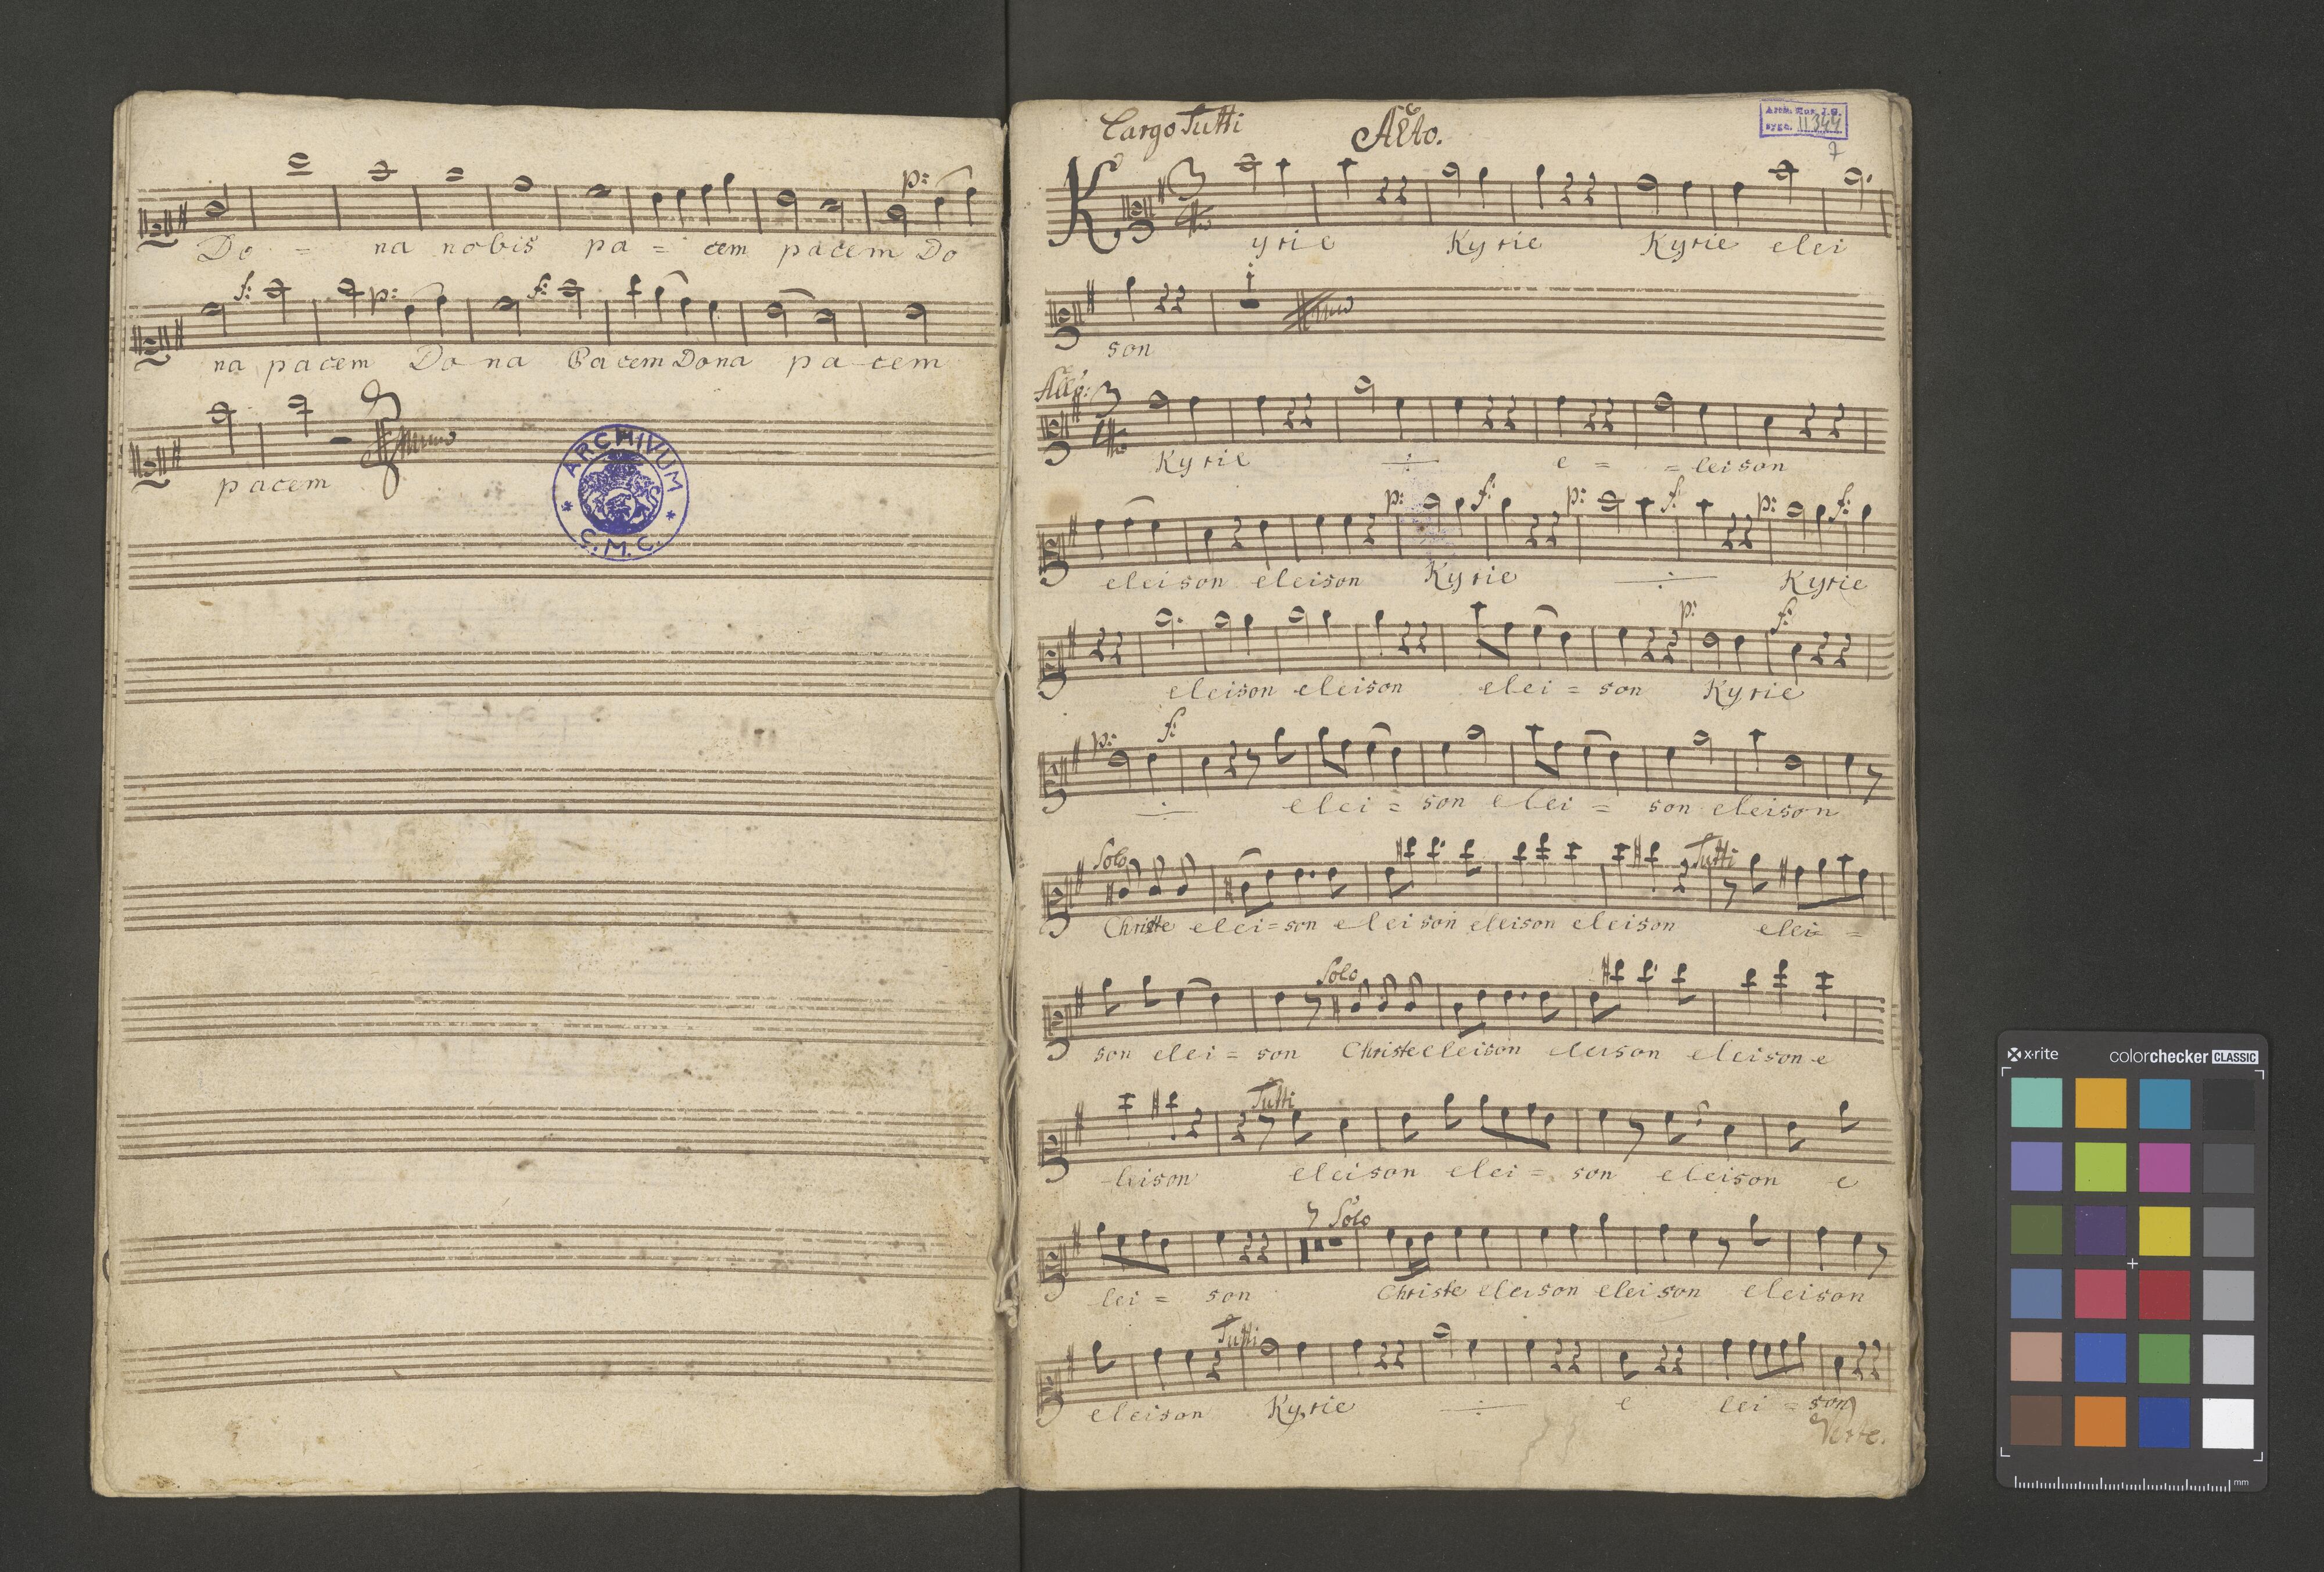 p:
Do = na nobis pa = cem pacem Do
f: p: f:
na pacem Do na Pacem Dona pa cem
pacem
ARCHIVUM
* C.M.C. *
Largo Tutti Alto.
Arch. Kur. J.G.
sygn. II 344
7
Kyrie Kyrie Kyrie elei
son
All⁰: 3
Kyrie ÷ e = = leison
p: f: p: f: p: f:
eleison eleison Kyrie ÷ Kyrie
p: f:
eleison eleison elei = son Kyrie
p: f:
÷ elei = son elei = son eleison
Solo Tutti
Christe elei = son eleison eleison eleison elei =
Solo
son elei = son Christe eleison eleison eleison e
Tutti
-leison eleison elei = son eleison e
7 Solo
lei = son Christe eleison eleison eleison
Tutti
eleison Kyrie ÷ e lei = son
Verte.
x·rite colorchecker CLASSIC
mm